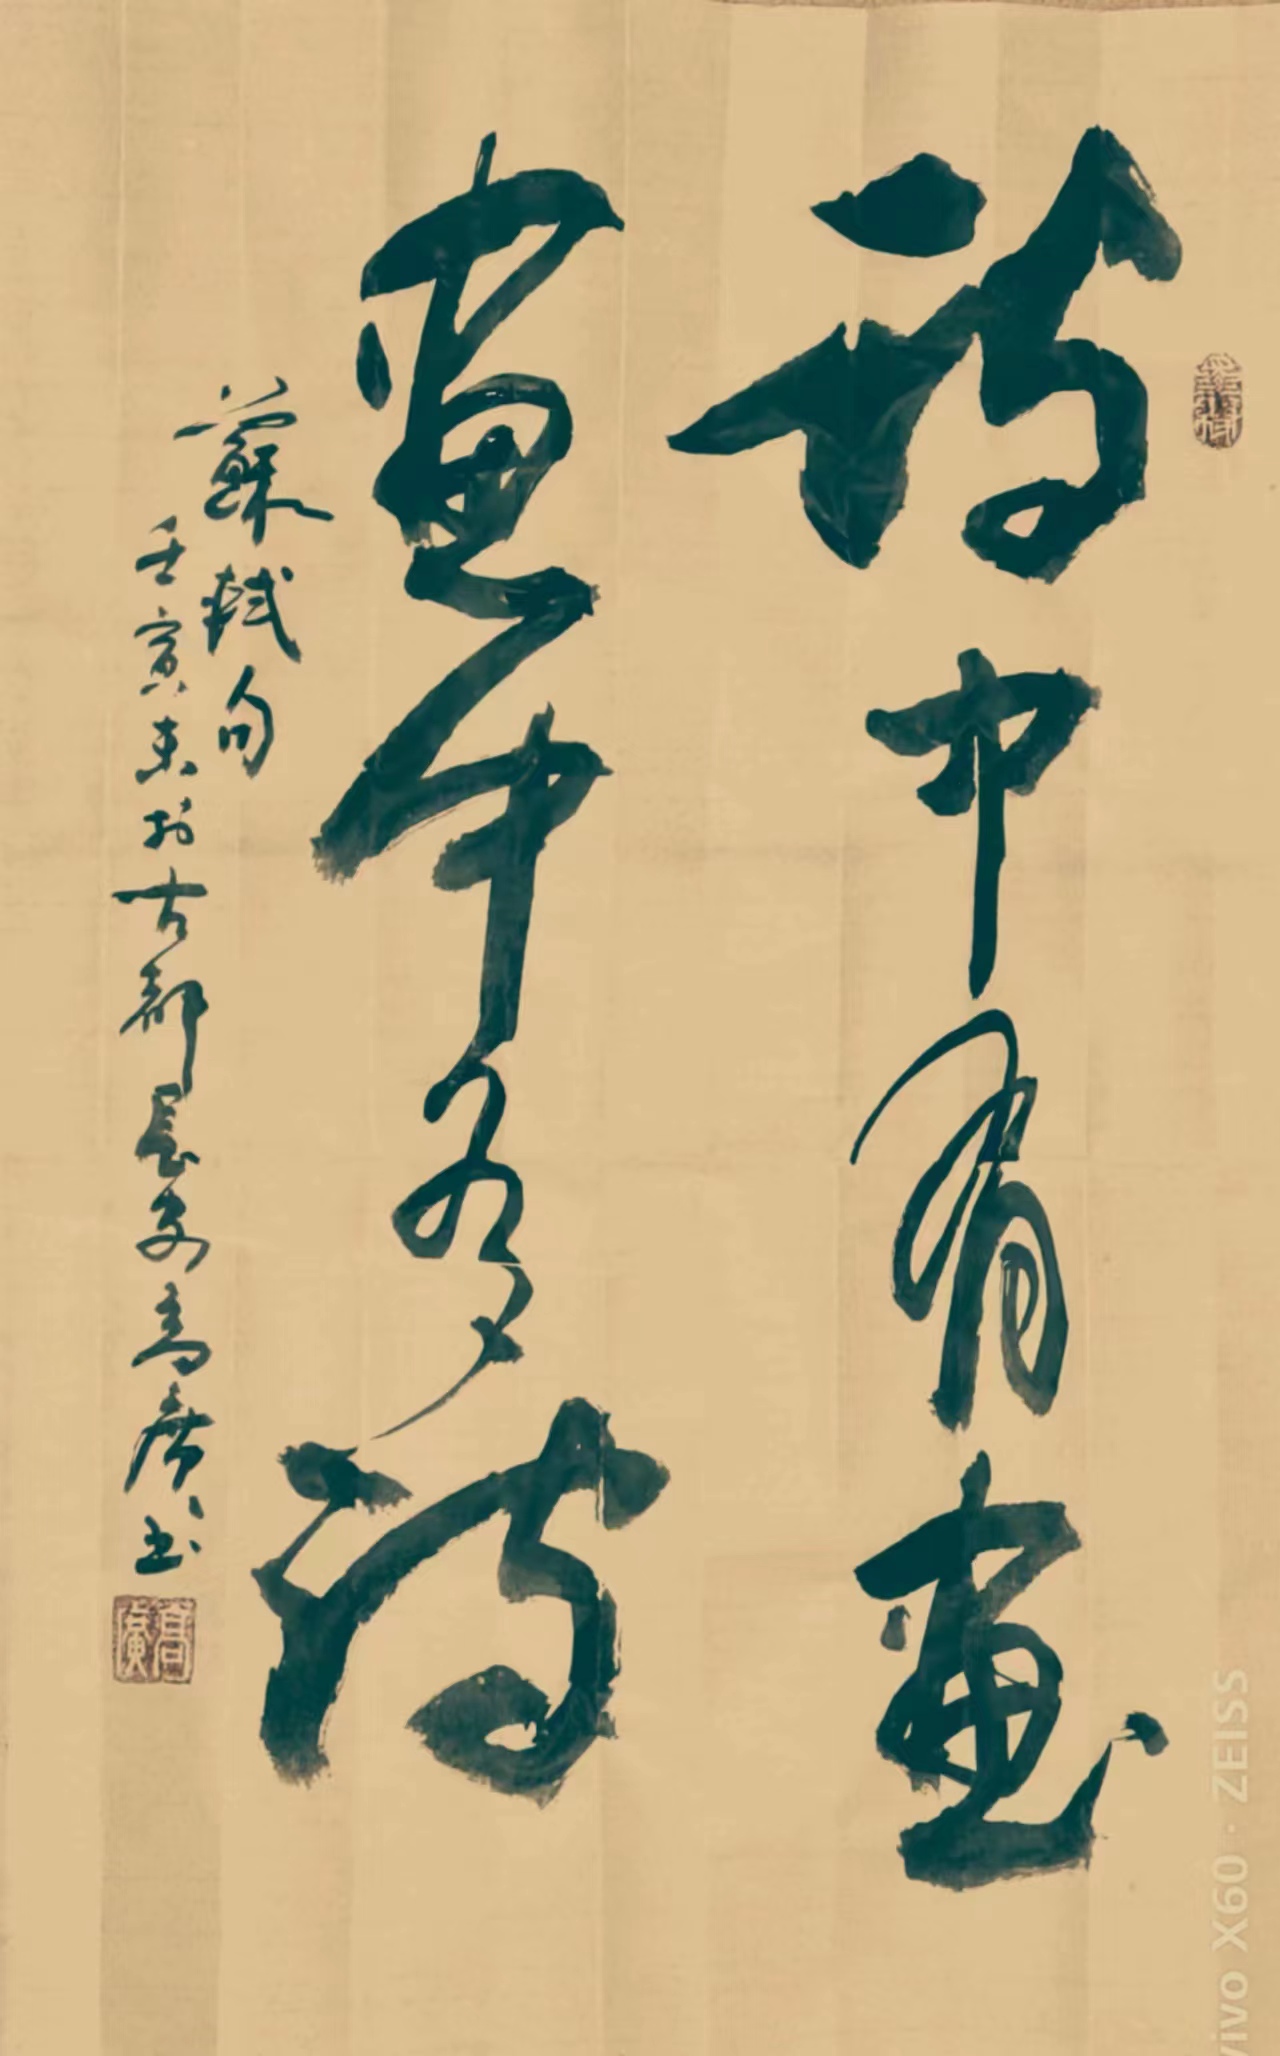 詩中有畫
畫中有詩
蘇軾句
壬寅 於古都長安高廣書
高廣
vivo X60 · ZEISS